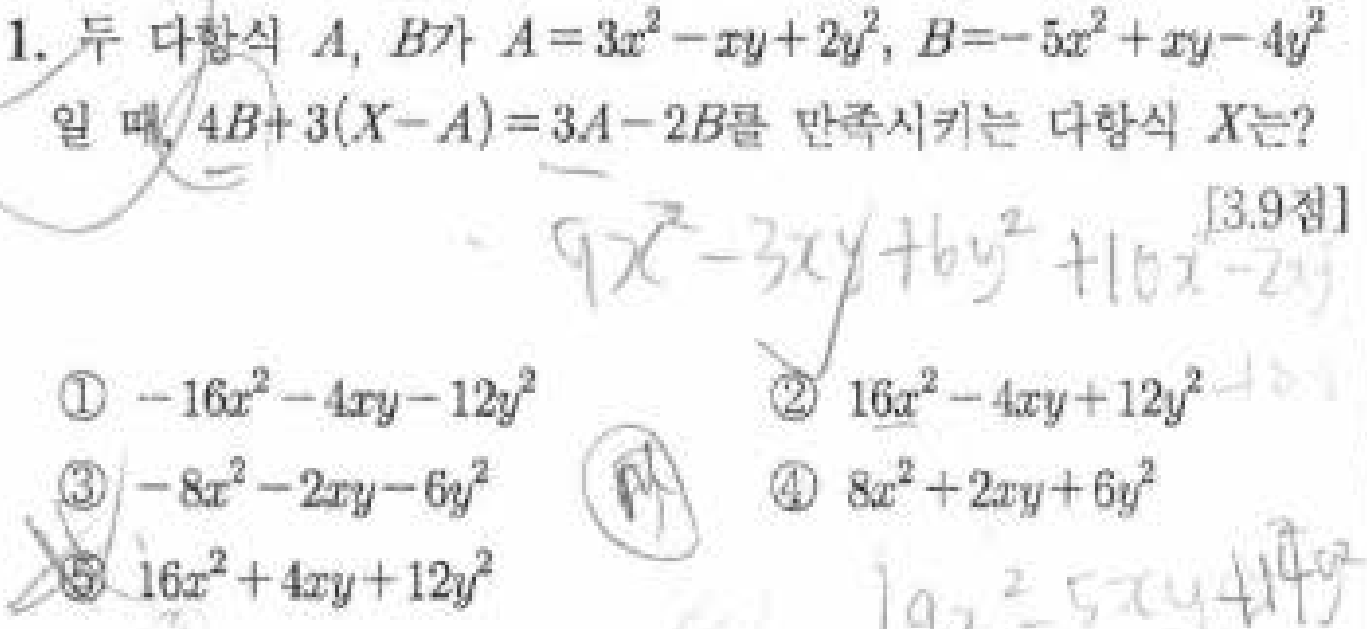 1. 두 다항식 A, B가 A=3x²-xy+2y², B=-5x²+xy-4y²
일 때, 4B+3(X-A)=3A-2B를 만족시키는 다항식 X는?
[3.9점]
9x²-3xy+6y²+10x²-2xy
① -16x²-4xy-12y²
② 16x²-4xy+12y²
③ -8x²-2xy-6y²
④ 8x²+2xy+6y²
⑤ 16x²+4xy+12y²
19x²-5xy+14y²